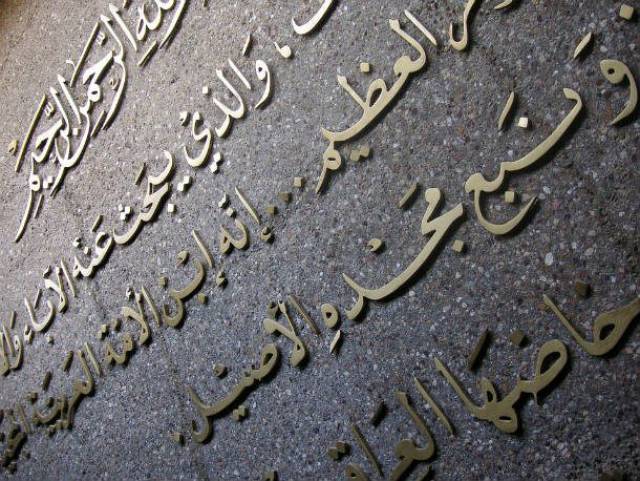 الله الرحمن الرحيم
والذي يبحث عنه الآباء
العظيم ... إنه ابن الأمة العربية
ونبع مجده الأصيل.
حاضنها